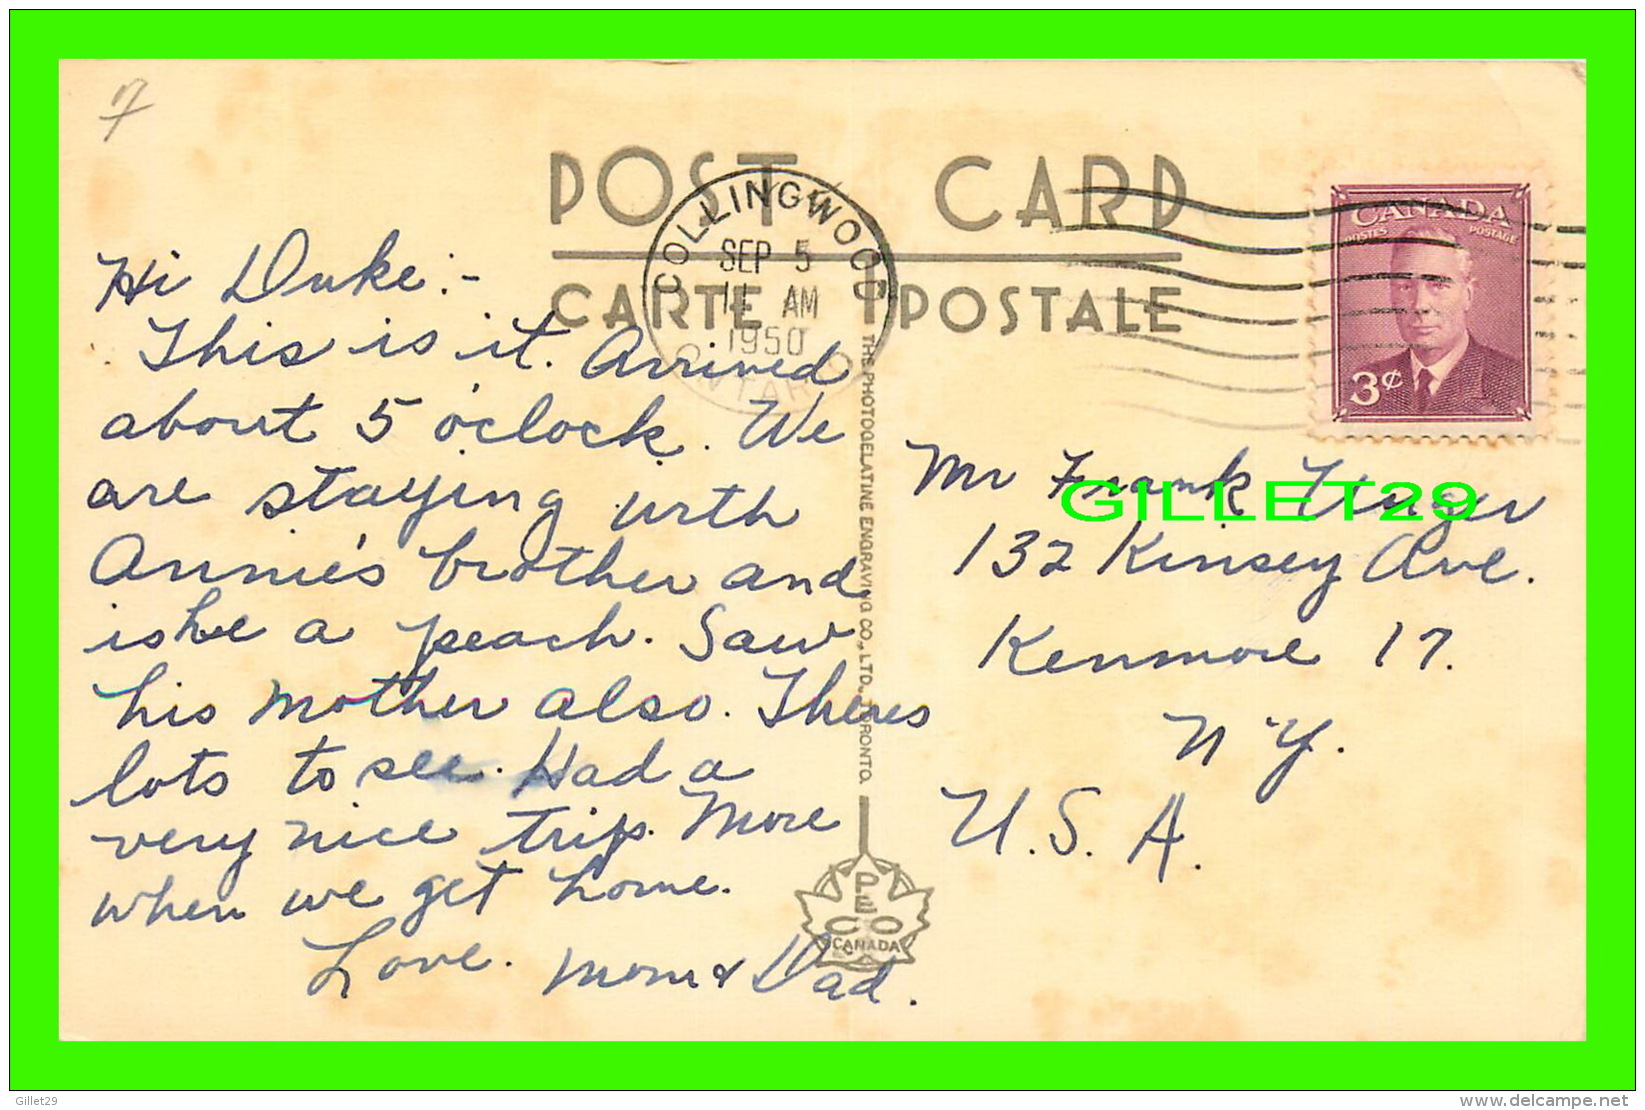 7
POST CARD
CARTE POSTALE
COLLINGWOOD
SEP 5
11 AM
1950
ONTARIO
CANADA
POSTES POSTAGE
3¢
Hi Duke:-
This is it. Arrived
about 5 o'clock. We
are staying with
Annie's brother and
is he a peach. Saw
his mother also. Theres
lots to see. Had a
very nice trip. More
when we get home.
Love. Mom & Dad.
THE PHOTOGELATINE ENGRAVING CO., LTD., TORONTO.
PECO
CANADA
Mr Frank
132 Kinsey Ave.
Kenmore 17.
N.Y.
U.S.A.
GILLET29
Gillet29
www.delcampe.net